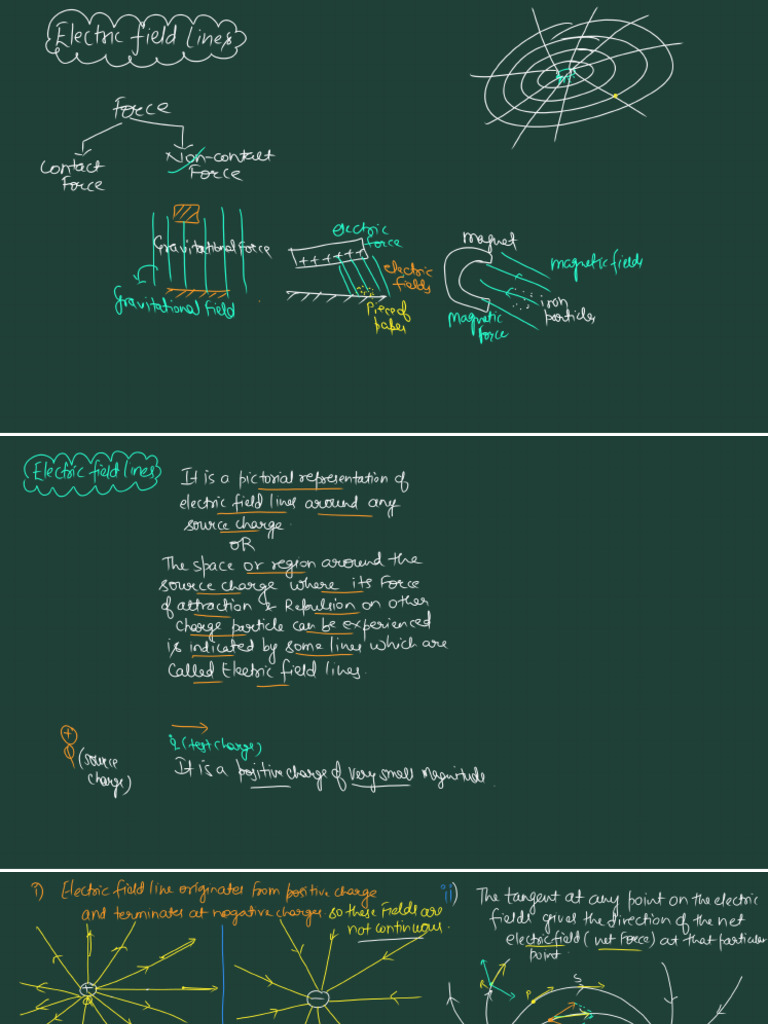 Electric field lines
Force
Contact
Force
Non-contact
Force
Gravitational force
Gravitational Field
electric
force
+++++++
electric
fields
Piece of
paper
magnet
magnetic fields
iron
particles
Magnetic
Force
Electric field lines
It is a pictorial representation of
electric field lines around any
source charge.
OR
The space or region around the
source charge where its Force
of attraction & Repulsion on other
charge particle can be experienced
is indicated by some lines which are
called Electric field lines.
+
(source
charge)
q (test charge)
It is a positive charge of very small magnitude.
i) Electric field line originates from positive charge
and terminates at negative charges so these Fields are
not continuous.
+
−
ii) The tangent at any point on the electric
fields gives the direction of the net
electric field ( net Force) at that particular
point.
R
P
S